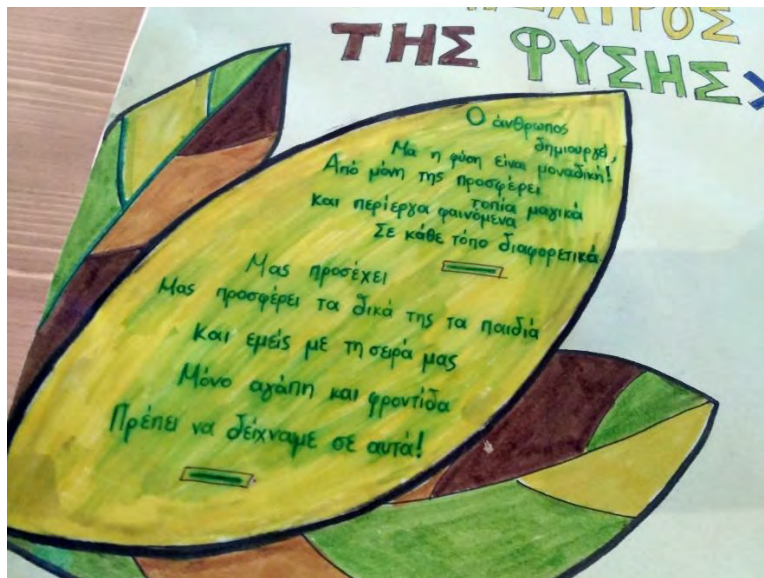 ΤΗΣ ΦΥΣΗΣ
Ο άνθρωπος
δημιουργεί,
Μα η φύση είναι μοναδική!
Από μόνη της προσφέρει
τοπία μαγικά
και περίεργα φαινόμενα
Σε κάθε τόπο διαφορετικά.
Μας προσέχει
Μας προσφέρει τα δικά της τα παιδιά
Και εμείς με τη σειρά μας
Μόνο αγάπη και φροντίδα
Πρέπει να δείχναμε σε αυτά!